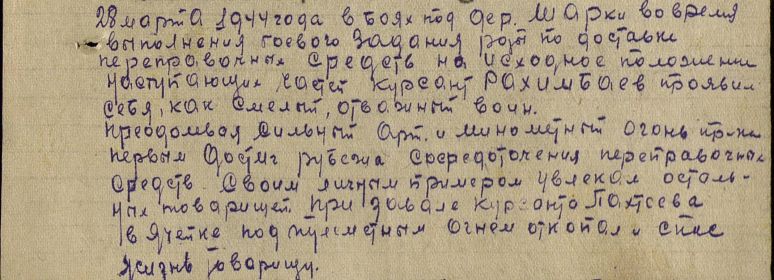 28 марта 1944 года в боях под дер. Шарки во время
выполнения боевого задания роты по доставке
переправочных средств на исходное положение
наступающих частей курсант Рахимбаев проявил
себя, как смелый, отважный воин.
Преодолевая сильный арт. и минометный огонь пр-ка
первым достиг рубежа сосредоточения переправочных
средств. Своим личным примером увлекал осталь-
ных товарищей. При завале курсанта Пахтеева
в ячейке под пулеметным огнем откопал и спас
жизнь товарищу.